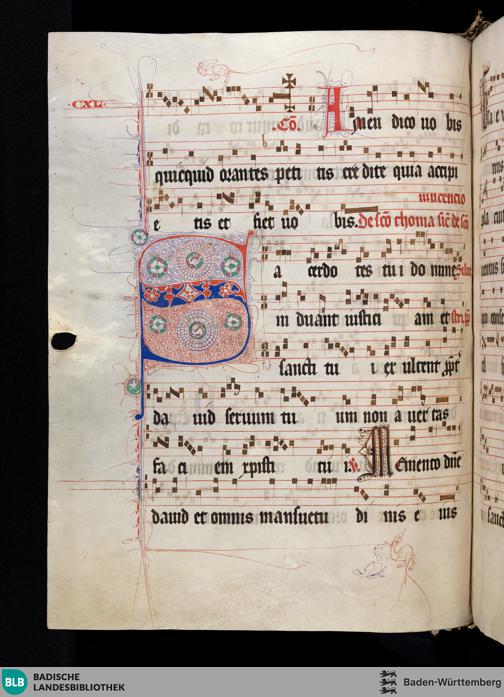 CXL.
.Cō. Amen dico uo bis
quicquid orantes peti tis cre dite quia accipi
e tis et fiet uo bis. De scō thoma sic de scō
innocencio
Sa cerdo tes tu i do mine
in duant iustici am et
sancti tu i ex ultent
da uid seruum tu um non a uer tas
fa ci em xpisti tu i. V. Memento dn̄e
dauid et omnis mansuetu di nis e ius
BLB BADISCHE
LANDESBIBLIOTHEK
Baden-Württemberg